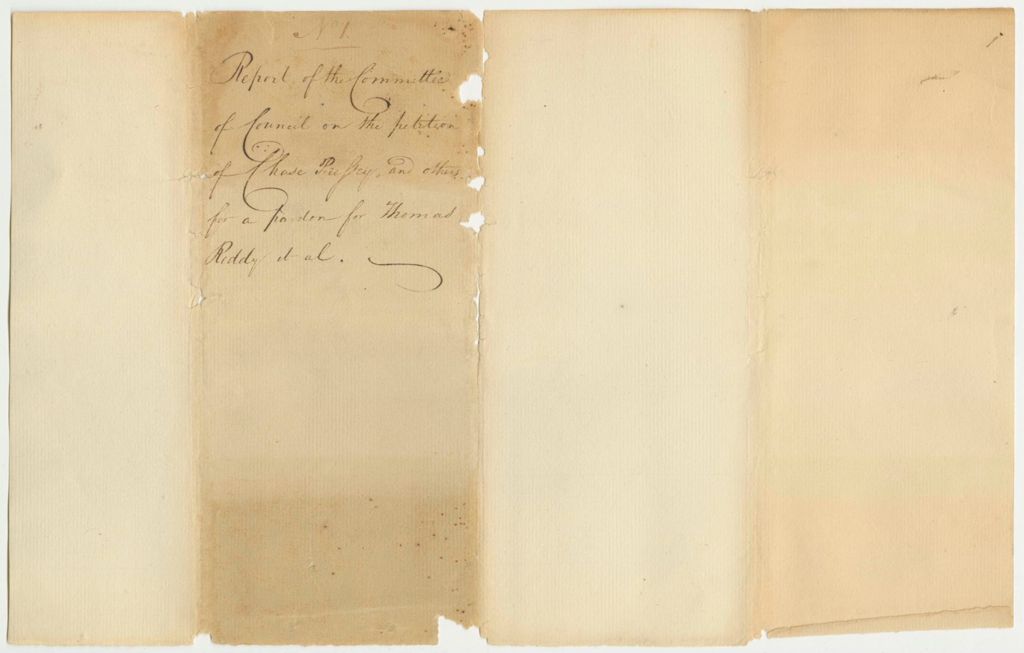 No 1.
Report of the Committee
of Council on the petition
of Chase and others
for a pardon for Thomas
Reddy et al.
1